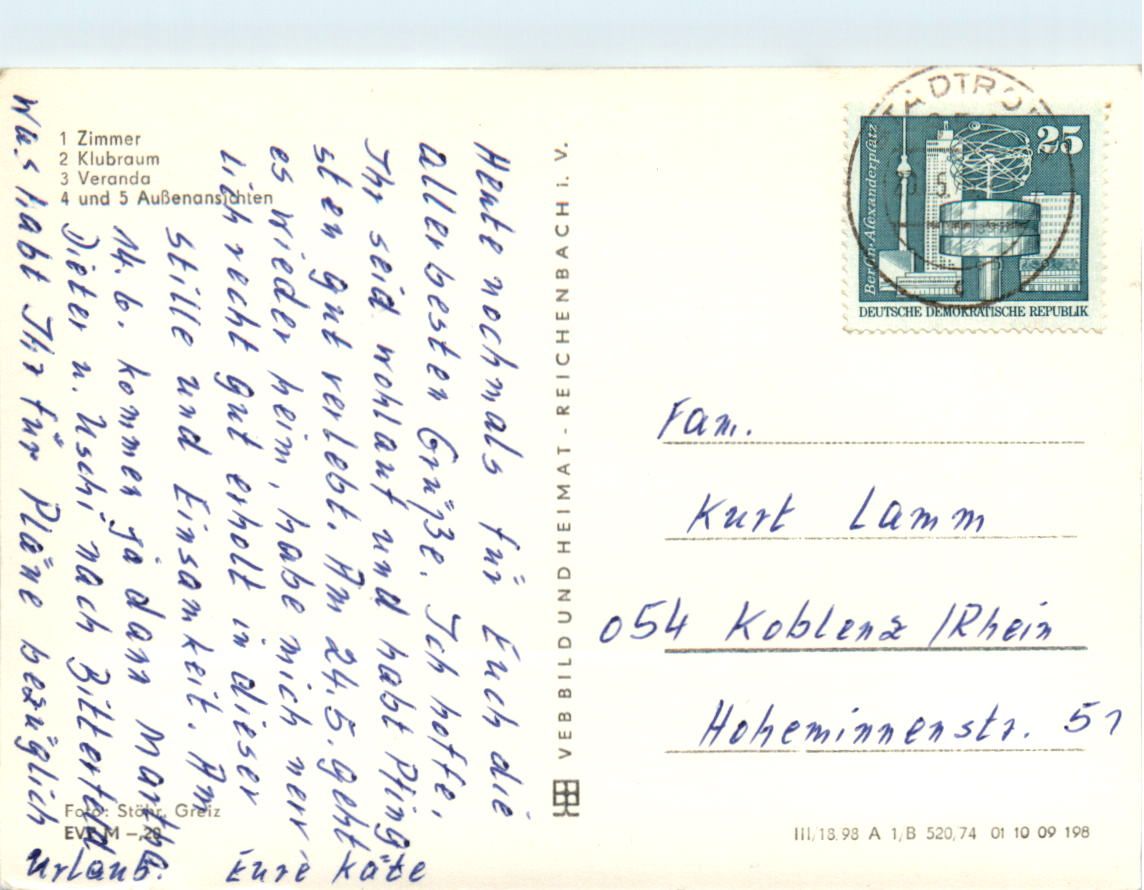 1 Zimmer
2 Klubraum
3 Veranda
4 und 5 Außenansichten
Heute nochmals für Euch die
allerbesten Grüße. Ich hoffe,
Ihr seid wohlauf und habt Pfing
sten gut verlebt. Am 24.5. geht
es wieder heim, habe mich nerv
lich recht gut erholt in dieser
Stille und Einsamkeit. Am
14.6. kommen ja dann Martha
Dieter u. Uschi nach Bitterfeld
Was habt Ihr für Pläne bezüglich
Urlaub. Eure Käte
Foto: Stöhr, Greiz
EVP M –,20
VEB BILD UND HEIMAT - REICHENBACH i. V.
STADTRO
Berlin-Alexanderplatz
25
DEUTSCHE DEMOKRATISCHE REPUBLIK
Fam.
Kurt Lamm
054 Koblenz /Rhein
Hoheminnenstr. 51
III/18.98 A 1/B 520,74 01 10 09 198